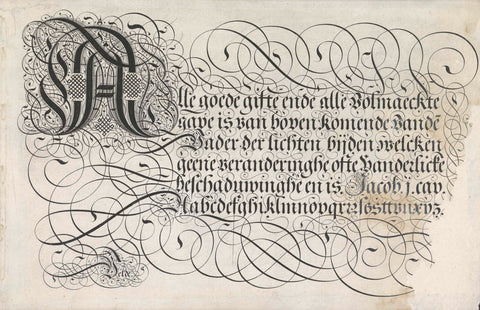 Alle goede gifte ende alle Volmaeckte
gave is van boven komende vandē
Vader der lichten bijden welcken
geene veranderinghe ofte Vanderlicke
beschaduwinghe en is. Jacob j. cap.
Aabcdefghiklmnopqrrzsſttvuxyz.
Velde.